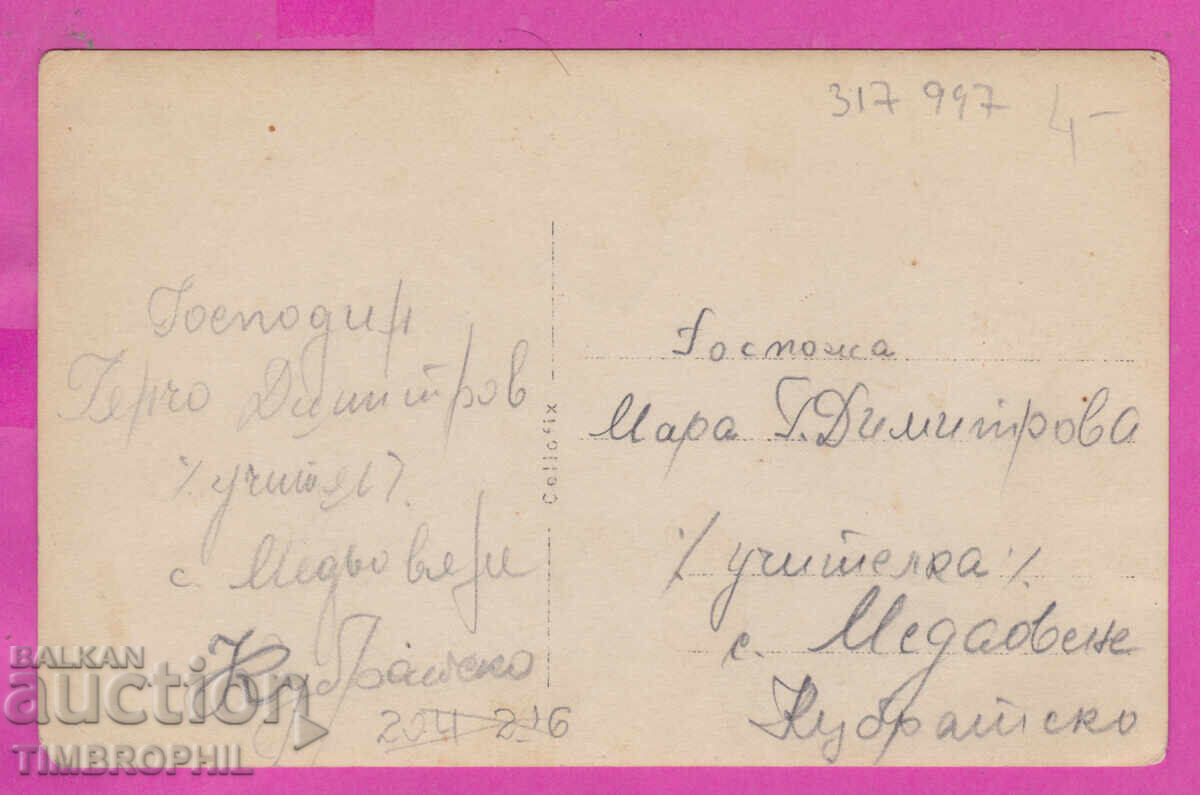 317 997 4-
Господин
Герчо Димитров
% учител %.
с. Медовене
Кубратско
204 216
Cellofix
Госпожа
Мара Г. Димитрова
% учителка %.
с. Медовене
Кубратско
BALKAN
auction
TIMBROPHIL